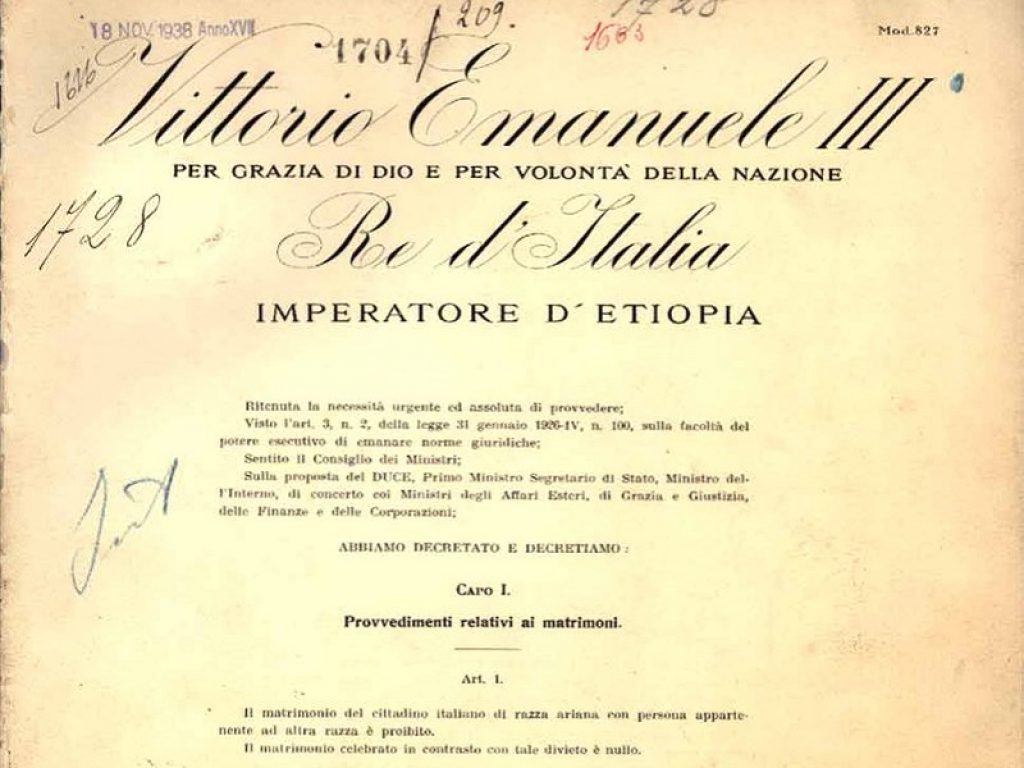 18 NOV 1938 Anno XVII
209.
1728
Mod. 827
1704
1683
1616
Vittorio Emanuele III
PER GRAZIA DI DIO E PER VOLONTÀ DELLA NAZIONE
1728
Re d'Italia
IMPERATORE D'ETIOPIA
Ritenuta la necessità urgente ed assoluta di provvedere;
Visto l'art. 3, n. 2, della legge 31 gennaio 1926-IV, n. 100, sulla facoltà del
potere esecutivo di emanare norme giuridiche;
Sentito il Consiglio dei Ministri;
Sulla proposta del DUCE, Primo Ministro Segretario di Stato, Ministro del-
l'Interno, di concerto coi Ministri degli Affari Esteri, di Grazia e Giustizia,
delle Finanze e delle Corporazioni;
ABBIAMO DECRETATO E DECRETIAMO:
CAPO I.
Provvedimenti relativi ai matrimoni.
Art. 1.
Il matrimonio del cittadino italiano di razza ariana con persona apparte-
nente ad altra razza è proibito.
Il matrimonio celebrato in contrasto con tale divieto è nullo.